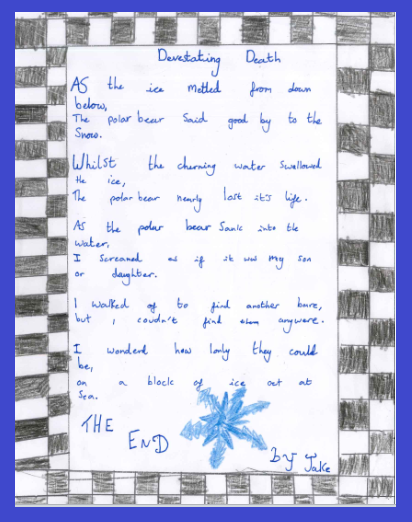 Devestating Death
AS the ice melted from down
below,
The polar bear Said good by to the
Snow.
Whilst the churning water Swallowed
the ice,
The polar bear nearly lost it's life.
As the polar bear Sank into the
water,
I screaned as if it was my son
or daughter.
I walked of to find another bare,
but i coudn't find them anywere.
I wonderd how lonly they could
be,
on a block of ice out at
Sea.
THE
END
by Jake